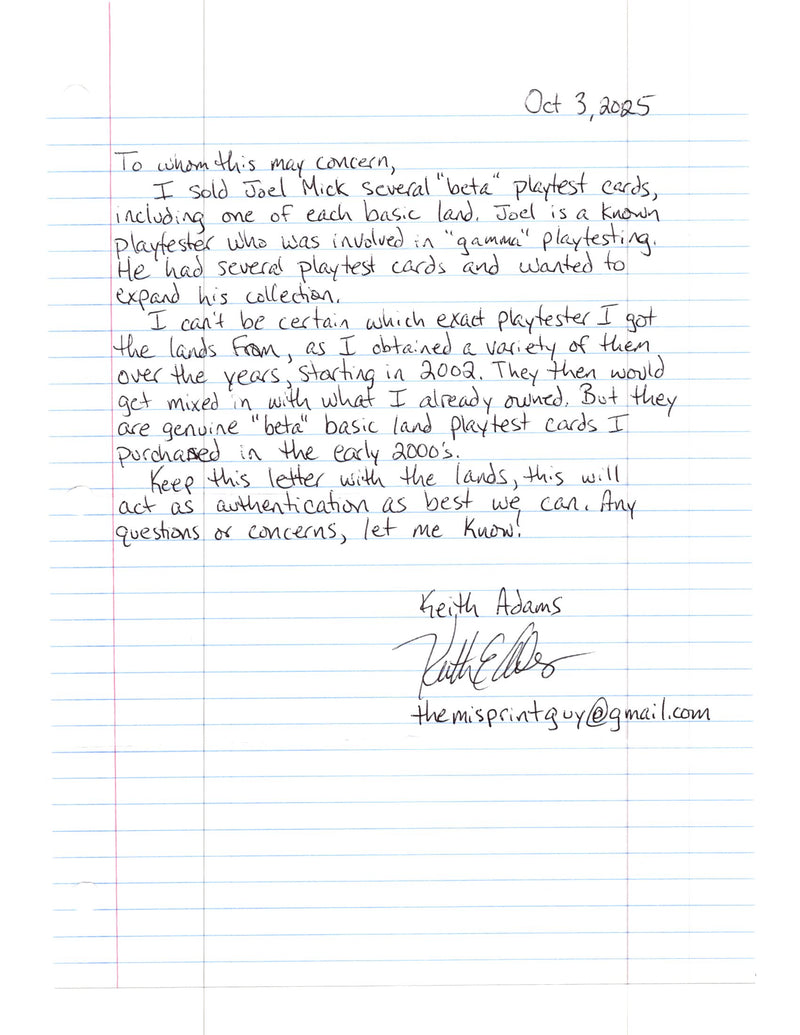 Oct 3, 2025
To whom this may concern,
I sold Joel Mick several "beta" playtest cards,
including one of each basic land. Joel is a known
playtester who was involved in "gamma" playtesting.
He had several playtest cards and wanted to
expand his collection.
I can't be certain which exact playtester I got
the lands from, as I obtained a variety of them
over the years, starting in 2002. They then would
get mixed in with what I already owned. But they
are genuine "beta" basic land playtest cards I
purchased in the early 2000's.
Keep this letter with the lands, this will
act as authentication as best we can. Any
questions or concerns, let me know!
Keith Adams
Keith E Adams
themisprintguy@gmail.com